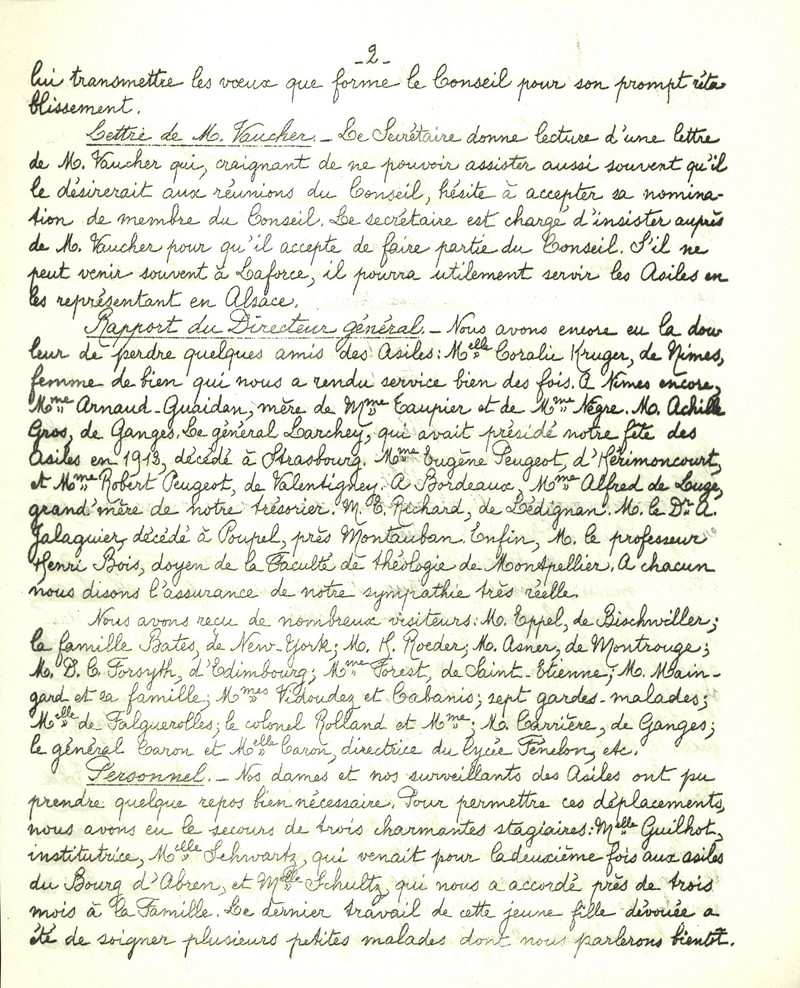 -2-
lui transmettre les vœux que forme le Conseil pour son prompt réta
blissement.
Lettre de M. Vaucher. - Le Secrétaire donne lecture d'une lettre
de M. Vaucher qui, craignant de ne pouvoir assister aussi souvent qu'il
le désirerait aux réunions du Conseil, hésite à accepter sa nomina-
tion de membre du Conseil. Le secrétaire est chargé d'insister auprès
de M. Vaucher pour qu'il accepte de faire partie du Conseil. S'il ne
peut venir souvent à Laforce, il pourra utilement servir les Asiles en
les représentant en Alsace.
Rapport du Directeur général. - Nous avons encore eu la dou
leur de perdre quelques amis des Asiles: Melle Coralie Kruger, de Nimes,
femme de bien qui nous a rendu service bien des fois. A Nimes encore,
Mme Arnaud-Guaidan, mère de Mme Taupier et de Mme Nègre. M. Achille
Gros, de Ganges. Le général Larchey, qui avait présidé notre fête des
Asiles en 1913, décédé à Strasbourg. Mme Eugène Peugeot, d'Hérimoncourt,
et Mme Robert Peugeot, de Valentigney. A Bordeaux, Mme Alfred de Luze,
grand'mère de notre trésorier. M. E. Richard, de Lédignan. M. le Dr A.
Jalaguier, décédé à Poupel, près Montauban. Enfin, M. le professeur
Henri Bois, doyen de la Faculté de théologie de Montpellier. A chacun
nous disons l'assurance de notre sympathie très réelle.
Nous avons reçu de nombreux visiteurs: M. Eppel, de Bischwiller;
la famille Bates, de New-York; M. H. Roeder; M. Asner, de Montrouge;
M. D. C. Forsyth, d'Edimbourg; Mme Forest, de Saint-Etienne; M. Main-
gard et sa famille; Mmes Vidoudez et Cabanis; sept gardes-malades;
Melle de Falguerolles; le colonel Rolland et Mme; M. Carrière, de Ganges;
le général Caron et Melle Caron, directrice du lycée Fénelon, etc.
Personnel. - Nos dames et nos surveillants des Asiles ont pu
prendre quelque repos bien nécessaire. Pour permettre ces déplacements,
nous avons eu le secours de trois charmantes stagiaires: Melle Guilhot,
institutrice, Melle Schwartz, qui venait pour la deuxième fois aux asiles
du Bourg d'Abren, et Melle Schultz, qui nous a accordé près de trois
mois à la Famille. Le dernier travail de cette jeune fille dévouée a
été de soigner plusieurs petites malades dont nous parlerons bientôt.